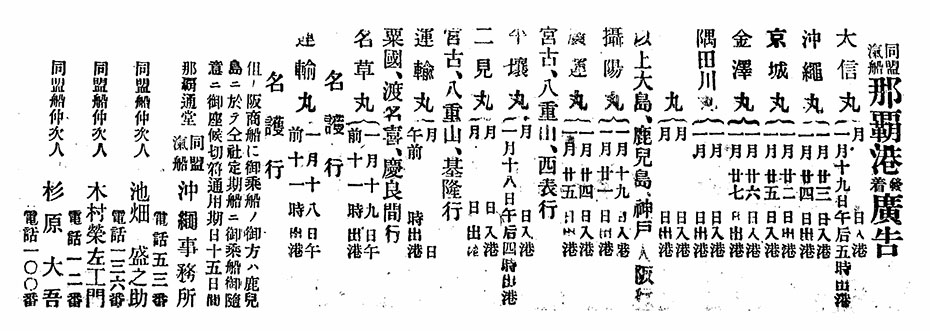 同盟汽船那覇港発着廣告
大信丸 月 日入港
一月十九日午后五時出港
沖繩丸 一月廿三日入港
一月廿四日出港
京城丸 一月廿二日入港
金澤丸 一月廿六日入港
一月廿七日出港
隅田川丸 月 日入港
一月 日出港
丸 月 日入港
月 日出港
以上大島、鹿兒島、神戸、大阪行
攝陽丸 一月十九日入港
一月廿一日出港
廣運丸 一月廿四日入港
一月廿五日出港
宮古、八重山、西表行
平壤丸 一月十八日午后四時出港
二見丸 月 日入港
月 日出港
宮古、八重山、基隆行
運輸丸 月 日
午前 時出港
粟國、渡名喜、慶良間行
名草丸 一月十九日午
前十一時出港
名護行
運輸丸 一月十八日午
前十一時出港
名護行
但シ阪商船ニ御乘船ノ御方ハ鹿兒
島ニ於テ全社定期船ニ御乘船御隨
意ニ御座候切符通用期日十五日間
那覇通堂 同盟汽船 沖繩事務所
電話五三番
同盟船仲次人 池畑盛之助
電話一三六番
同盟船仲次人 木村榮左エ門
電話一二番
同盟船仲次人 杉原大吾
電話一〇〇番